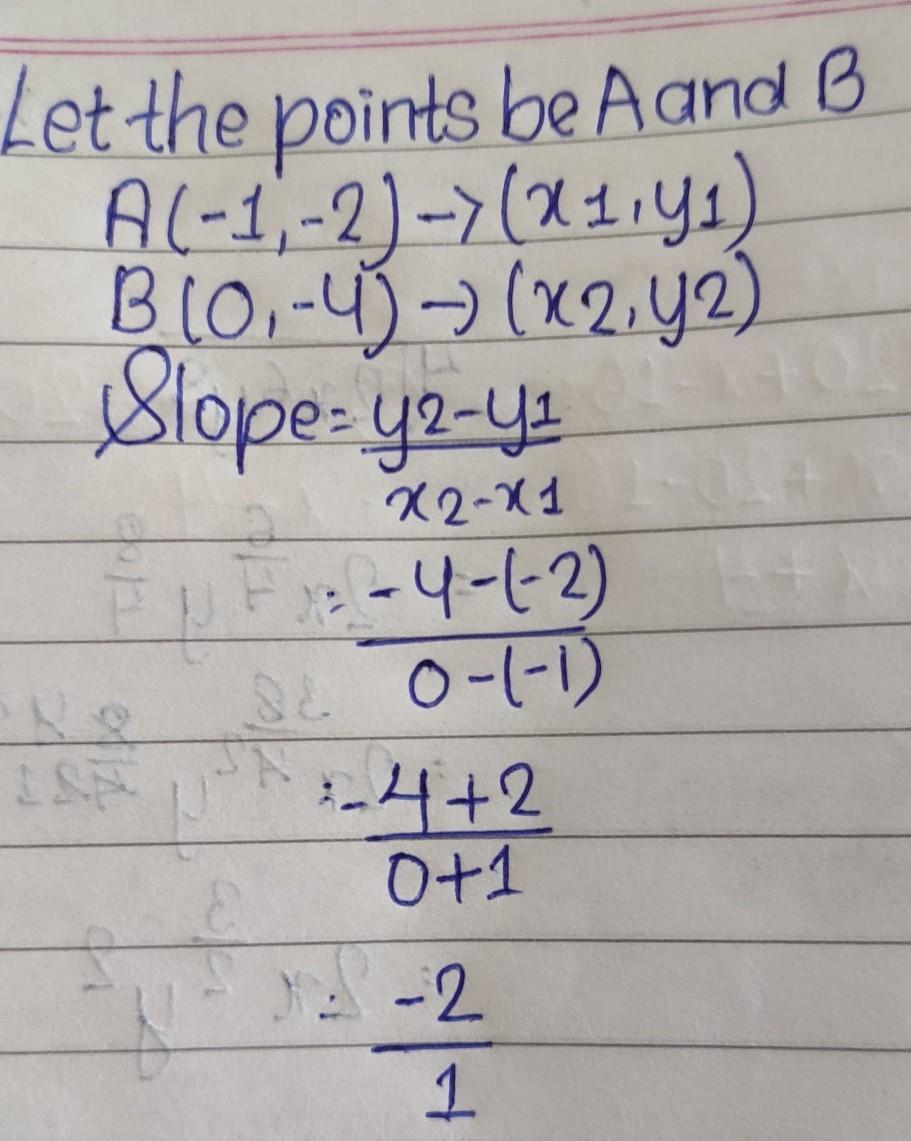 Let the points be A and B
A(-1,-2)→(x1,y1)
B(0,-4)→(x2,y2)
Slope=y2-y1
x2-x1
=-4-(-2)
0-(-1)
=-4+2
0+1
=-2
1